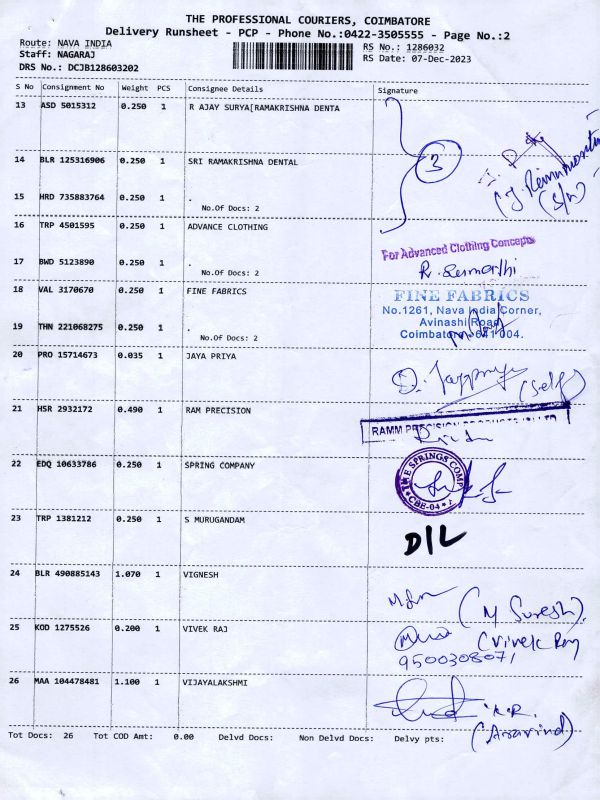 THE PROFESSIONAL COURIERS, COIMBATORE
Delivery Runsheet - PCP - Phone No.:0422-3505555 - Page No.:2
Route: NAVA INDIA
Staff: NAGARAJ
DRS No.: DCJB128603202
RS No.: 1286032
RS Date: 07-Dec-2023
S No Consignment No Weight PCS Consignee Details Signature
13 ASD 5015312 0.250 1 R AJAY SURYA[RAMAKRISHNA DENTA
3
14 BLR 125316906 0.250 1 SRI RAMAKRISHNA DENTAL
15 HRD 735883764 0.250 1 .
No.Of Docs: 2
16 TRP 4501595 0.250 1 ADVANCE CLOTHING
For Advanced Clothing Concepts
17 BWD 5123890 0.250 1 .
No.Of Docs: 2
18 VAL 3170670 0.250 1 FINE FABRICS
FINE FABRICS
No.1261, Nava India Corner,
Avinashi Road,
Coimbatore - 641 004.
19 THN 221068275 0.250 1 .
No.Of Docs: 2
20 PRO 15714673 0.035 1 JAYA PRIYA
(Self)
21 HSR 2932172 0.490 1 RAM PRECISION
RAMM PRECISION PRODUCTS
22 EDQ 10633786 0.250 1 SPRING COMPANY
THE SPRINGS COMP
CBE-04
23 TRP 1381212 0.250 1 S MURUGANDAM
D/L
24 BLR 490885143 1.070 1 VIGNESH
(M Suresh).
25 KOD 1275526 0.200 1 VIVEK RAJ
(Vivek Raj
9500308071
26 MAA 104478481 1.100 1 VIJAYALAKSHMI
K.R.
(Aravind)
Tot Docs: 26 Tot COD Amt: 0.00 Delvd Docs: Non Delvd Docs: Delvy pts: